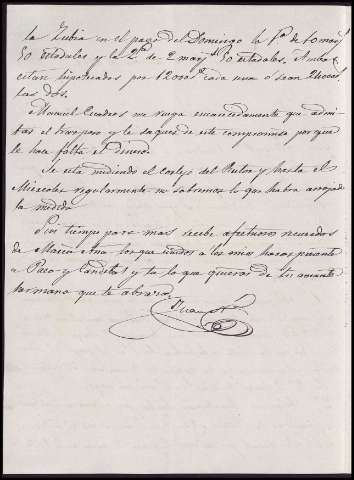 la Zubia en el pago del Domingo la 1ª de 10 marjs
50 estadales y la 2ª de 2 marjs 50 estadales. Ambas
están hipotecadas por 12000 rs cada una o sean 24000
las dos.
Manuel Cuadros me ruega encarecidamente que admi-
tas el traspaso y le saques de este compromiso porque
le hace falta el dinero.
Se está midiendo el cortijo del Rector y hasta el
Miércoles regularmente no sabremos lo que habrá arrojado
la medida.
Sin tiempo para mas recibe afectuosos recuerdos
de María Ana los que unidos a los mios haras presente
a Paco y Candida y tu lo que quieras de tu amante
hermano que te abraza
Juan